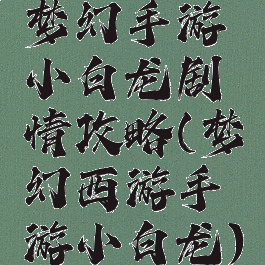 梦幻手游
小白龙剧
情攻略(梦
幻西游手
游小白龙)